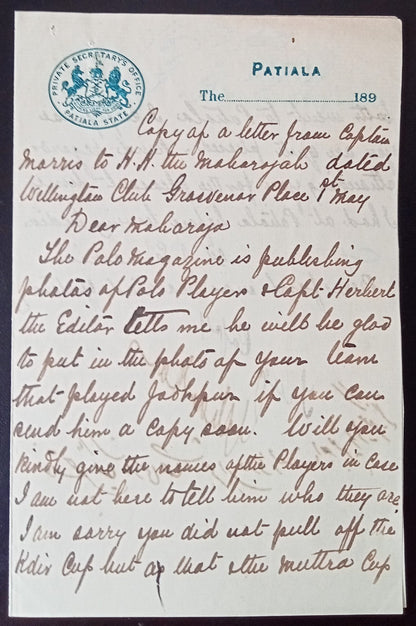 PRIVATE SECRETARY'S OFFICE
PATIALA STATE
PATIALA
The 189
Copy of a letter from Captain
Morris to H.H. the Maharajah dated
Wellington Club Grosvenor Place 1st May
Dear Maharaja
The Polo Magazine is publishing
photos of Polo Players & Capt Herbert
the Editor tells me he will be glad
to put in the photo of your team
that played Jodhpur if you can
send him a copy soon. Will you
kindly give the names of the Players in case
I am not here to tell him who they are
I am sorry you did not pull off the
Cup but as that & the Muttra Cup